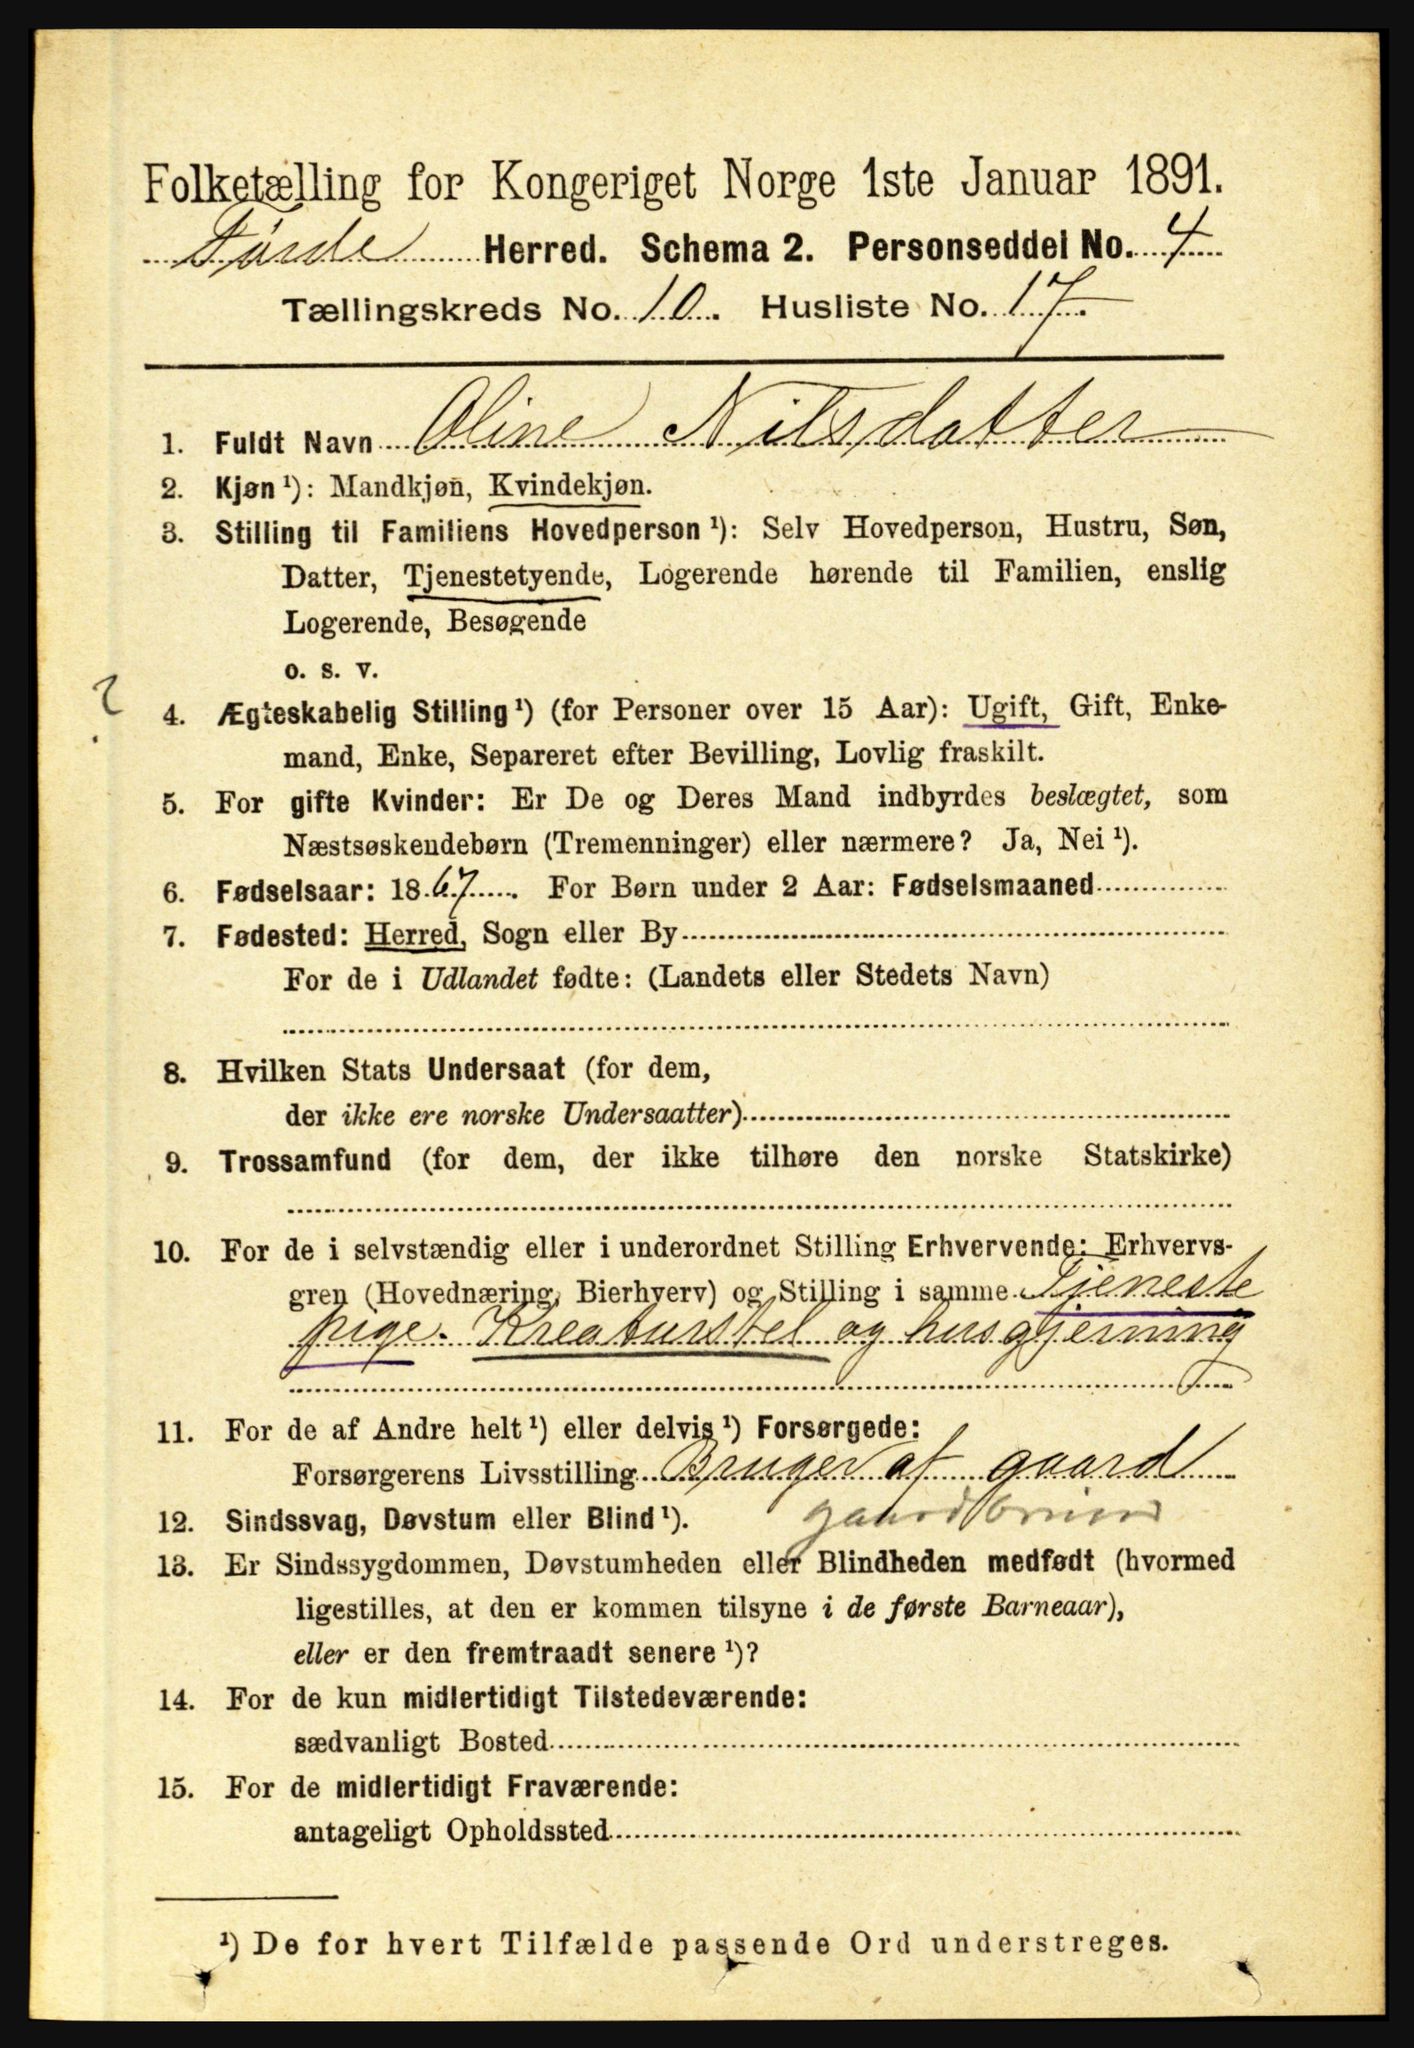 Folketælling for Kongeriget Norge 1ste Januar 1891.
Førde Herred. Schema 2. Personseddel No. 4
Tællingskreds No. 10. Husliste No. 17.
1. Fuldt Navn Oline Nilsdatter
2. Kjøn ¹): Mandkjøn, Kvindekjøn.
3. Stilling til Familiens Hovedperson ¹): Selv Hovedperson, Hustru, Søn,
Datter, Tjenestetyende, Logerende hørende til Familien, enslig
Logerende, Besøgende
o. s. v.
?
4. Ægteskabelig Stilling ¹) (for Personer over 15 Aar): Ugift, Gift, Enke-
mand, Enke, Separeret efter Bevilling, Lovlig fraskilt.
5. For gifte Kvinder: Er De og Deres Mand indbyrdes beslægtet, som
Næstsøskendebørn (Tremenninger) eller nærmere? Ja, Nei ¹).
6. Fødselsaar: 1867. For Børn under 2 Aar: Fødselsmaaned
7. Fødested: Herred, Sogn eller By
For de i Udlandet fødte: (Landets eller Stedets Navn)
8. Hvilken Stats Undersaat (for dem,
der ikke ere norske Undersaatter)
9. Trossamfund (for dem, der ikke tilhøre den norske Statskirke)
10. For de i selvstændig eller i underordnet Stilling Erhvervende: Erhvervs-
gren (Hovednæring, Bierhverv) og Stilling i samme Tjeneste
pige. Kreaturstel og husgjerning
11. For de af Andre helt ¹) eller delvis ¹) Forsørgede:
Forsørgerens Livsstilling Bruger af gaard
12. Sindssvag, Døvstum eller Blind ¹).
13. Er Sindssygdommen, Døvstumheden eller Blindheden medfødt (hvormed
ligestilles, at den er kommen tilsyne i de første Barneaar),
eller er den fremtraadt senere ¹)?
14. For de kun midlertidigt Tilstedeværende:
sædvanligt Bosted
15. For de midlertidigt Fraværende:
antageligt Opholdssted
¹) De for hvert Tilfælde passende Ord understreges.